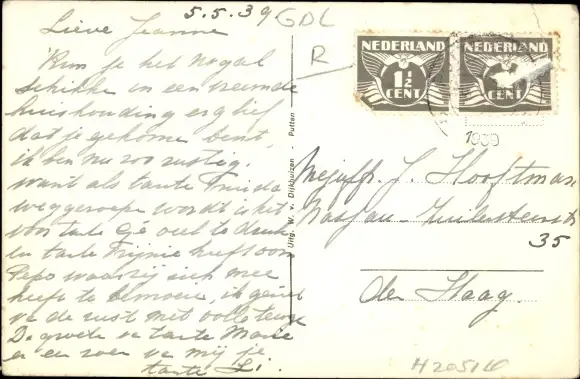 5.5.39 GDL
R
Lieve Jeanne
Kun je het nogal
schikke in een vreemde
huishouding erg lief
dat je gekome bent,
ik ben nu zoo rustig.
want als tante Truida
weggeroepe wordt is het
voor tante te druk
en tante Trijnie heeft oom
Pepo waar zij zich mee
heeft te bemoeie, ik geniet
de rust met volle teuge
De groete va tante Marie
en een zoen va mij je
tante Li.
Uitg. W. v. Dijkhuizen - Putten
NEDERLAND
1½
CENT
NEDERLAND
CENT
1939
Mejuffr. J. Hooftman
Nassau-
35
den Haag.
H20516